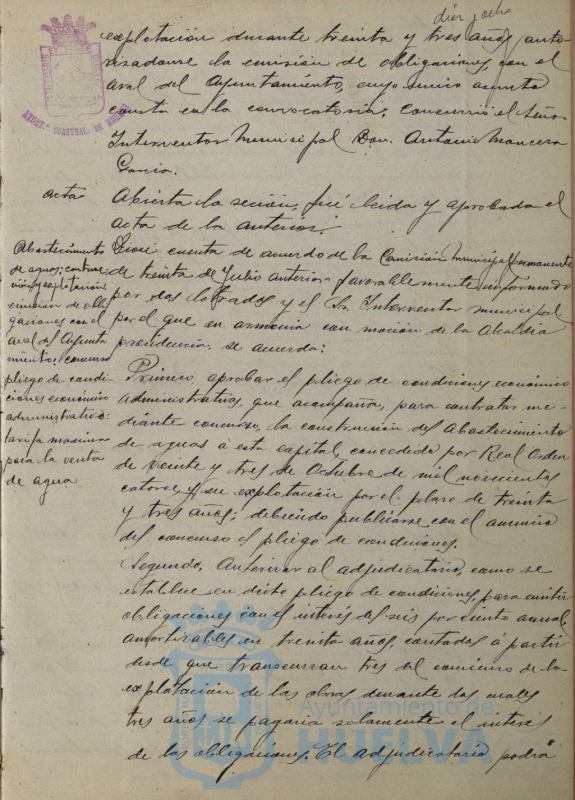 diez y ocho
explotación durante treinta y tres años, auto-
rizandose la emisión de obligaciones, con el
aval del Ayuntamiento, cuyo unico asunto
consta en la convocatoria; concurrió el Señor
Interventor Municipal Don Antonio Mancera
Garcia.
acta
Abierta la sesión, fué leida y aprobada el
acta de la anterior.
Abastecimiento
de aguas; construc
ción y explotación
emisión de obli-
gaciones con el
aval del Ayunta
miento: concurso
pliego de condi-
ciones económico
administrativo:
tarifa maxima
para la venta
de agua
Dióse cuenta de acuerdo de la Comisión Municipal Permanente
de treinta de Julio anterior favorablemente informado
por dos letrados y el Sr. Interventor municipal,
por el que en armonia con moción de la Alcaldia
presidencia, se acuerda:
Primero, aprobar el pliego de condiciones económico
administrativas, que acompaña, para contratar me-
diante concurso, la construcción del Abastecimiento
de aguas á esta capital, concedido por Real Orden
de veinte y tres de Octubre de mil novecientos
catorce, y su explotación por el plazo de treinta
y tres años; debiendo publicarse con el anuncio
del concurso el pliego de condiciones.
Segundo. Autorizar al adjudicatario, como se
establece en dicho pliego de condiciones, para emitir
obligaciones con el interés del seis por ciento anual,
amortizables en treinta años, contados á partir
desde que transcurran tres del comienzo de la
explotación de las obras durante los cuales
tres años se pagaria solamente el interes
de las obligaciones. El adjudicatario podrá
Ayuntamiento de
HUELVA